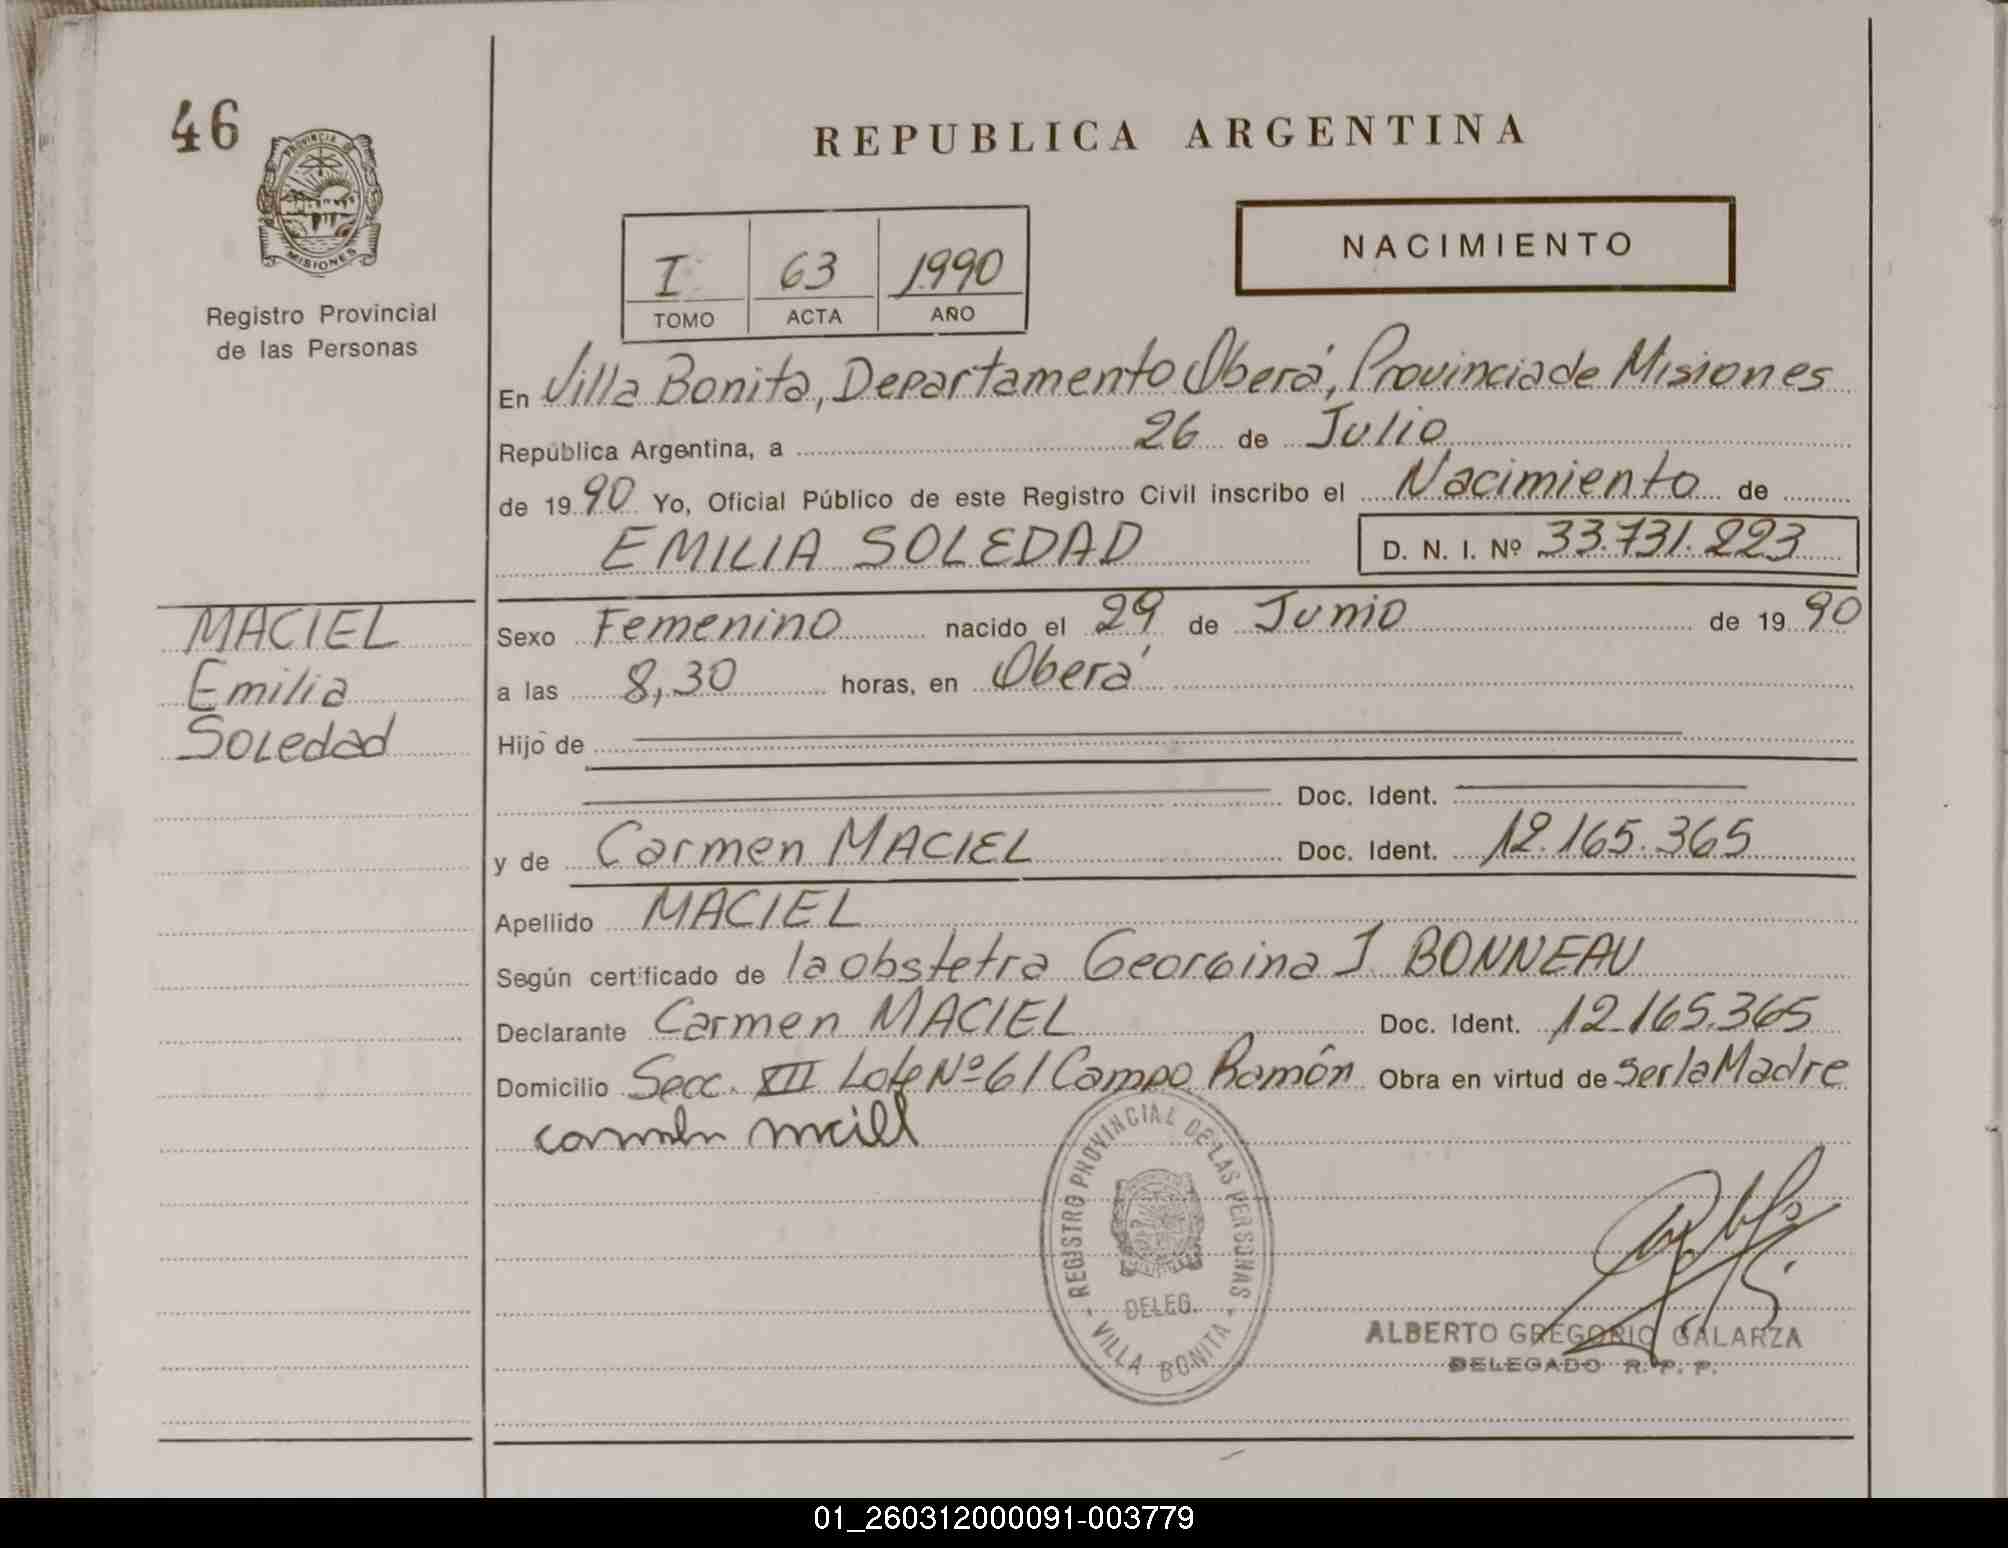 46
PROVINCIA DE
MISIONES
Registro Provincial
de las Personas
REPUBLICA ARGENTINA
NACIMIENTO
I 63 1990
TOMO ACTA AÑO
En Villa Bonita, Departamento Oberá, Provincia de Misiones
República Argentina, a 26 de Julio
de 1990 Yo, Oficial Público de este Registro Civil inscribo el Nacimiento de
EMILIA SOLEDAD D. N. I. Nº 33.731.223
MACIEL
Emilia
Soledad
Sexo Femenino nacido el 29 de Junio de 1990
a las 8,30 horas, en Oberá
Hijo de
Doc. Ident.
y de Carmen MACIEL Doc. Ident. 12.165.365
Apellido MACIEL
Según certificado de la obstetra Georgina J. BONNEAU
Declarante Carmen MACIEL Doc. Ident. 12.165.365
Domicilio Secc. XII Lote Nº 61 Campo Ramón Obra en virtud de ser la Madre
REGISTRO PROVINCIAL DE LAS PERSONAS
DELEG.
VILLA BONITA
ALBERTO GREGORIO GALARZA
DELEGADO R. P. P.
01_260312000091-003779